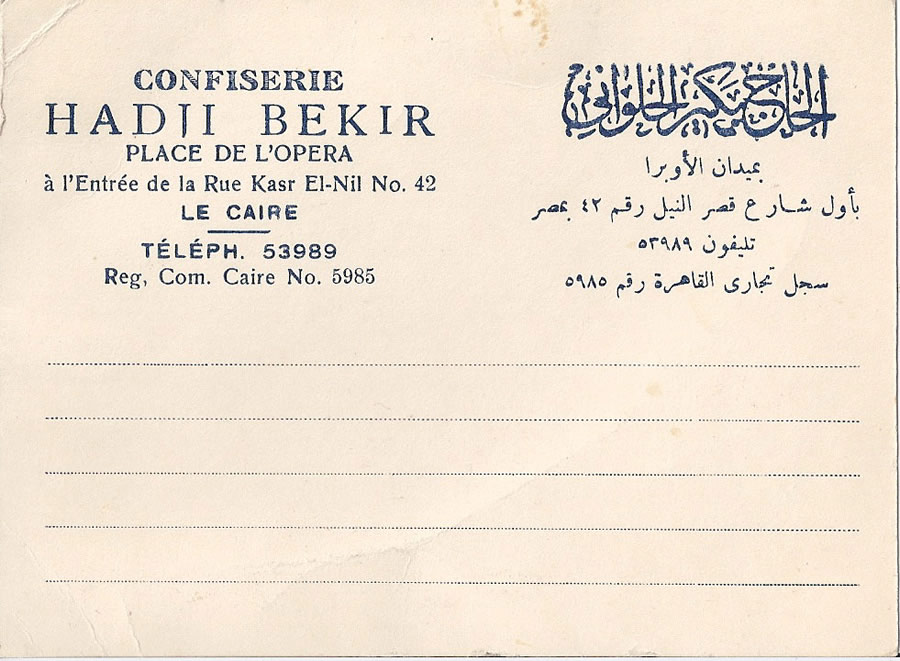 CONFISERIE
HADJI BEKIR
PLACE DE L'OPERA
à l'Entrée de la Rue Kasr El-Nil No. 42
LE CAIRE
TÉLÉPH. 53989
Reg, Com. Caire No. 5985
الحاج بكير الحلواني
بميدان الأوبرا
بأول شارع قصر النيل رقم ٤٢ بمصر
تليفون ٥٣٩٨٩
سجل تجارى القاهرة رقم ٥٩٨٥